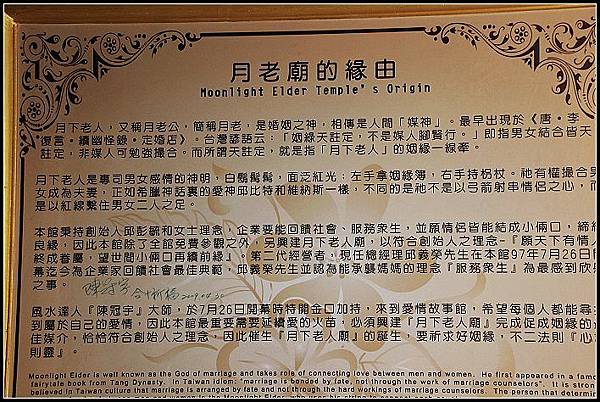 月老廟的緣由
Moonlight Elder Temple's Origin
月下老人，又稱月老公，簡稱月老，是婚姻之神，相傳是人間「媒神」。最早出現於《唐‧李
復言‧續幽怪錄‧定婚店》。台灣諺語云：「姻緣天註定，不是媒人腳賢行。」即指男女結合皆天
註定，非媒人可勉強撮合。而所謂天註定，就是指「月下老人」的姻緣一線牽。
月下老人是專司男女感情的神明，白鬍鬍鬚，面泛紅光；左手拿姻緣簿，右手持柺杖。祂有權撮合男
女成為夫妻，正如希臘神話裏的愛神邱比特和維納斯一樣，不同的是祂不是以弓箭射串情侶之心，而
是以紅線繫住男女二人之足。
本館秉持創始人邱彭毓和女士理念，企業要能回饋社會、服務眾生，並願情侶皆能結成小倆口，締結
良緣，因此本館除了全館免費參觀之外，另興建月下老人廟，以符合創始人之理念-『願天下有情人
終成眷屬，望世間小倆口再續前緣』。第二代經營者，現任總經理邱義榮先生在本館97年7月26日開
幕迄今為企業家回饋社會最佳典範，邱義榮先生並認為能承襲媽媽的理念『服務眾生』為最感到欣
之事。
風水達人『陳冠宇』大師，於7月26日開幕時特開金口加持，來到愛情故事館，希望每個人都能尋
到屬於自己的愛情，因此本館最重要需要延續愛的火苗，必須興建『月下老人廟』完成促成姻緣的
佳媒介，恰恰符合創始人之理念，因此催生『月下老人廟』的誕生，要祈求好姻緣，不二法則『心
則靈』。
Moonlight Elder is well known as the God of marriage and takes role of connecting love between men and women. He first appeared in a famo
fairytale book from Tang Dynasty. In Taiwan idiom: "marriage is bonded by fate, not through the work of marriage counselors". It is stron
believed in Taiwan culture that marriage is arranged by fate and not through the hard workings of marriage counselors. The person that determin